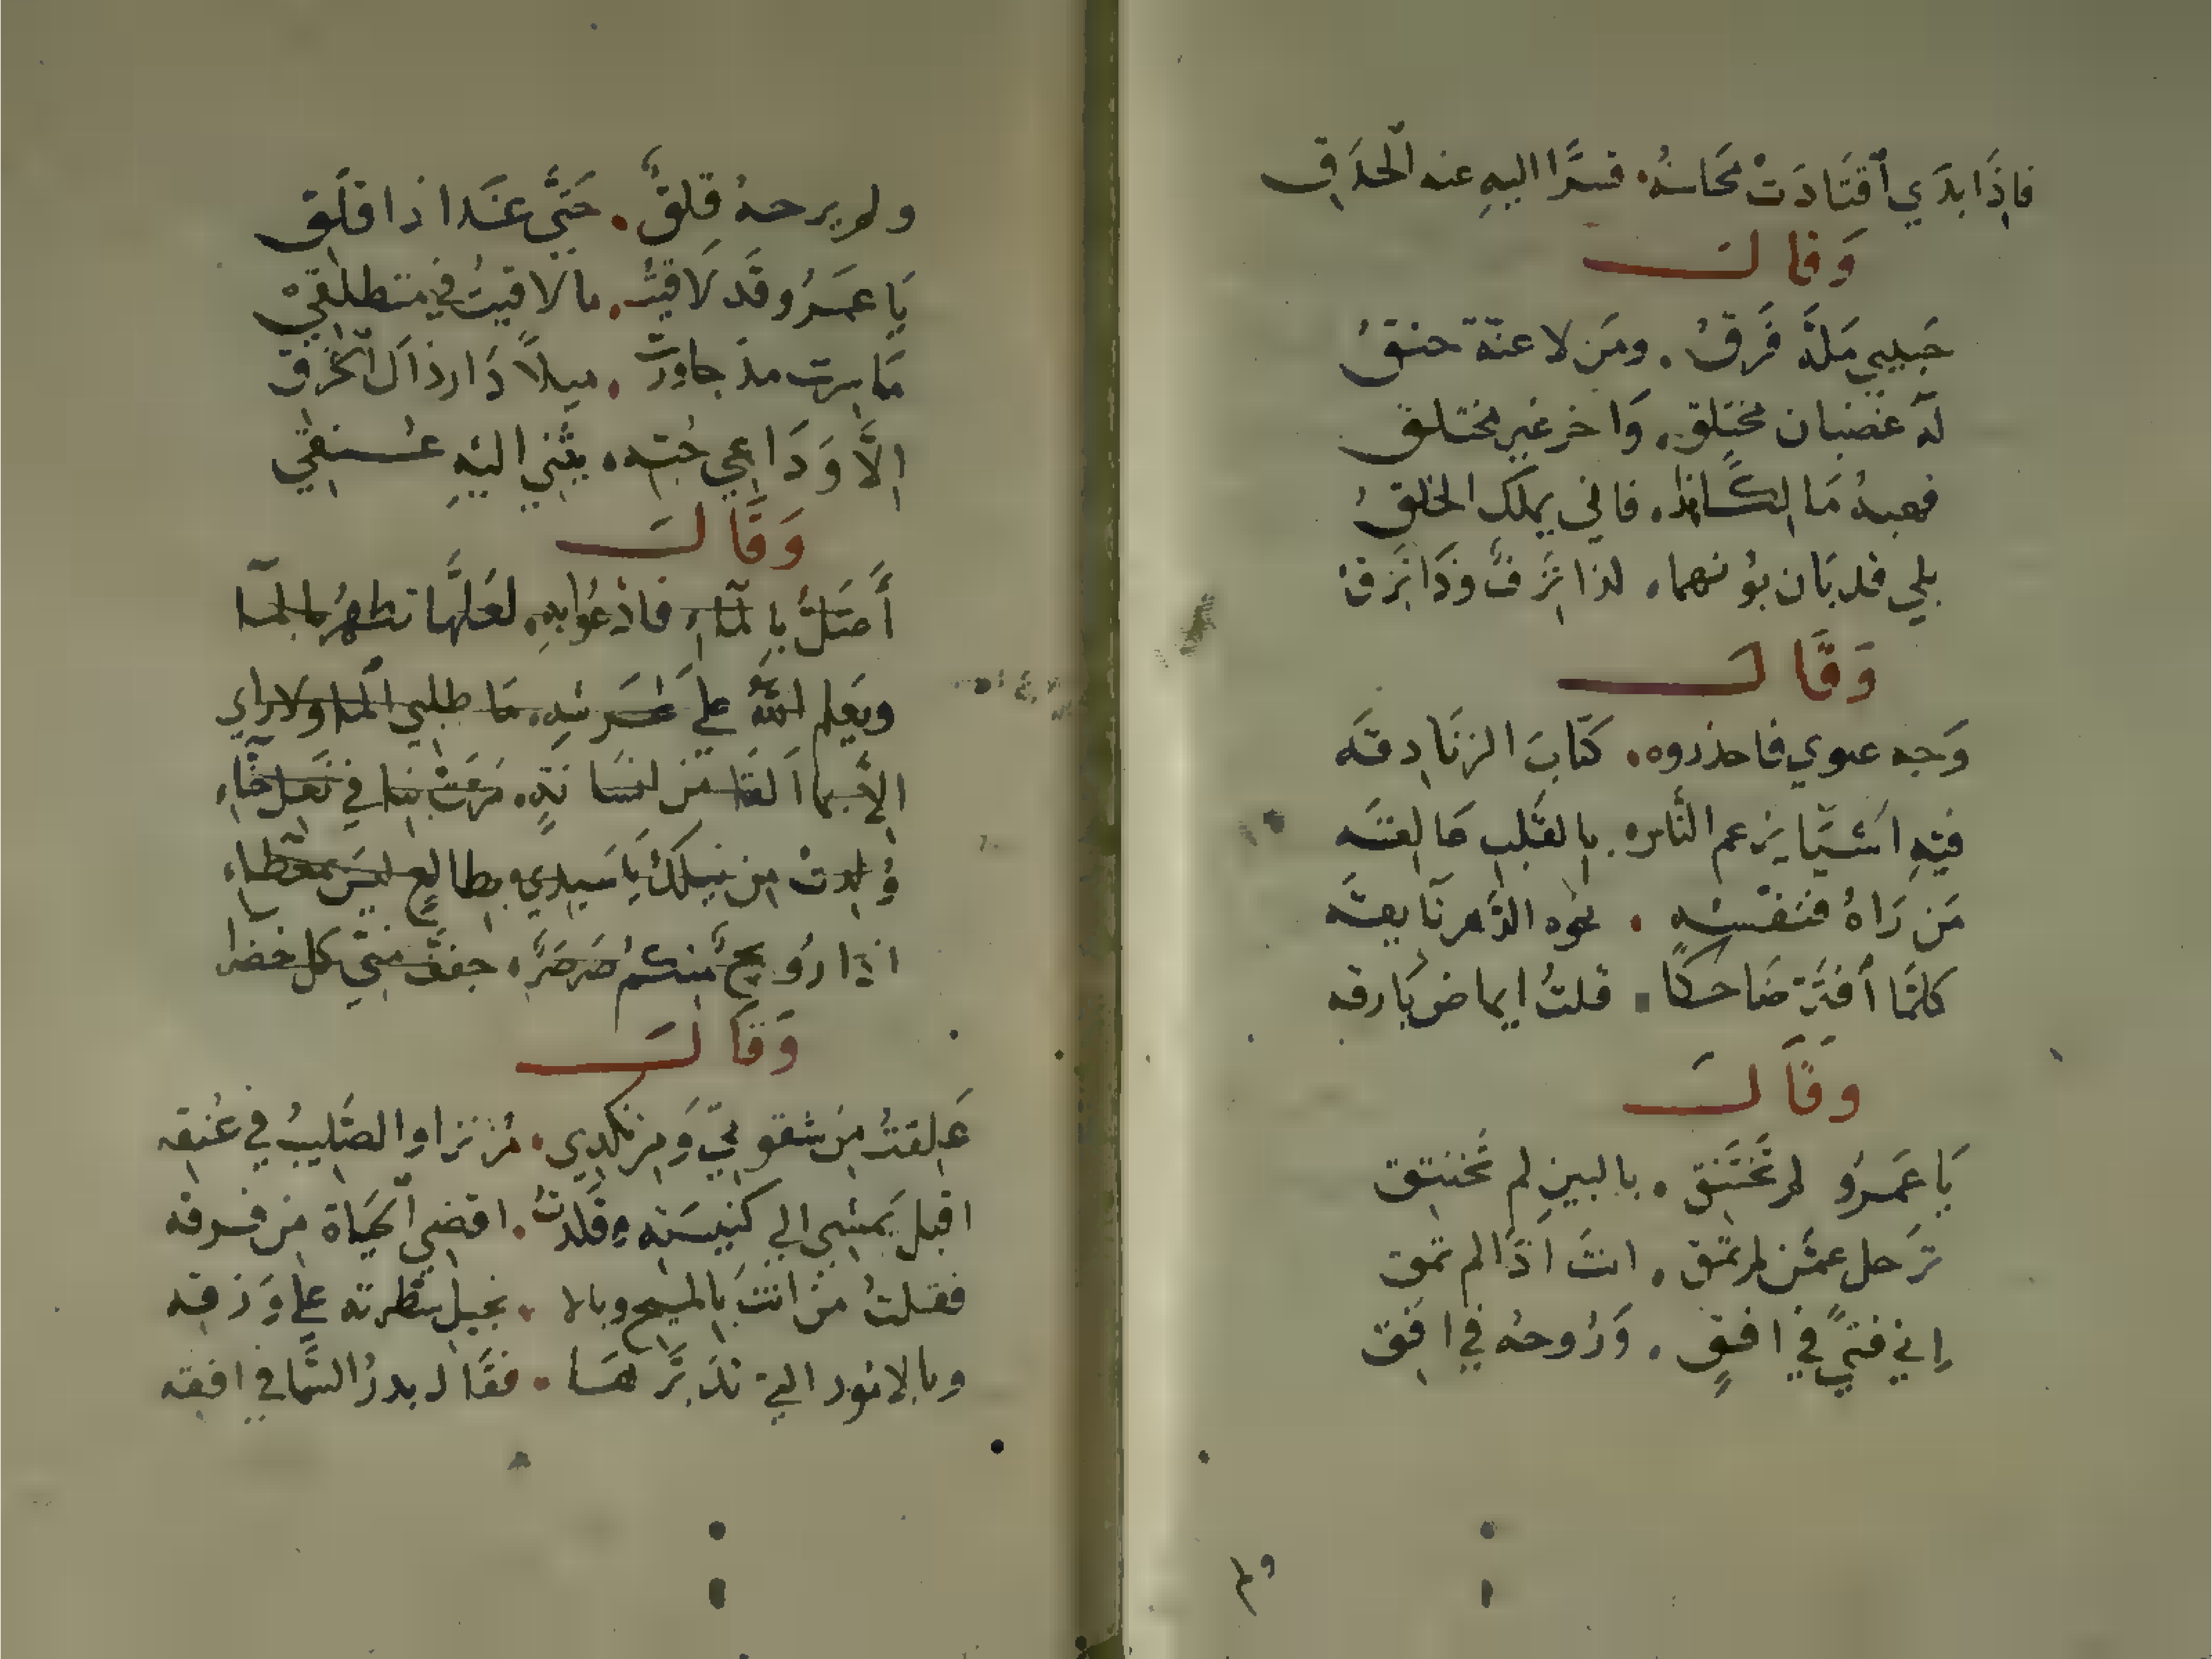 فاذَا بدَي اَقتَادَتْ مَحَاسنُه قسرًا اليهِ عنه الحدَق
وَقالَ
حَبيبي مَلَّه فَرَقُ ومَن لا عنّة حنقُ
لَه غضبان مختلق وَاخر غير مختلق
فهبهُ مَالِكًا هذا فاني يملك الخلقُ
بلي قد بَان بؤنهما لذا نَزقٌ وذَا نَزقُ
وَقَالَ
وَجه عبوي فاحذروه كتَابَ الزنَادِقَه
فيهِ اشيَّا يَزعم النَّاس بالقَلبِ عَالِقَه
مَن رَاهُ فنفسُه نحوه الدَّهر تَايقَه
كلمَّا اَفتَرّ ضَاحكًا قلتُ ايماض بَارقه
وقَالَ
يَا عَمرُو لم تخَتَنِق بالبينِ لم تَختنِق
تَرحل عمَّن لم تمُق انتَ اذًا لم تمق
اِني فتيً في افقٍ وَرُوحهُ في افِق
ولم يرحهُ قلقٌ حَتَّي غَدا ذا قلَق
يَا عمَرُو قَد لَاقيتُ ما لاقيتُ في منطلَقِي
مَا سرت مذ جاورت ميلاً دَار ذاكَ الخَرق
اِلَّا وَدَاعِي حُبّه يثَني اليَهِ عُنقِي
وَقَالَ
أَصَلُّ بالمآءِ فادْعُوا بهِ لعَلَّها تطهرُ بالمآ
ويَعلم اللهُ علي عَرشهِ مَا طلبي المآ ولا راي
الاَّ بما اَلقَا مَن انسَانةٍ مَرَّت بنا في نَعل حنَّاءِ
وُلِدتْ من نيلكُ يَا سَيدي بطالعٍ ليسَ بمعطاءِ
اذَا رَوُ يحٌ منكمُ صَرصَرٌ جففَّ منّي كل خضرا
وَقَالَ
عَلِقتُ مِن شقوتيَ وَمِن نكَدِي مُزنرا والصَّليبُ في عُنِقه
اقبل يَمشِي الي كنيسَتهِ فكدتُ اقضي الحَيَاة مِن فرقه
فقلتُ مَن انتَ بالمسِيح وبالا نجيلِ سَطَّرته علي وَرَقه
وبالانور التي تدَبَّرهَا فقَال بدرُ السَّما في افقه